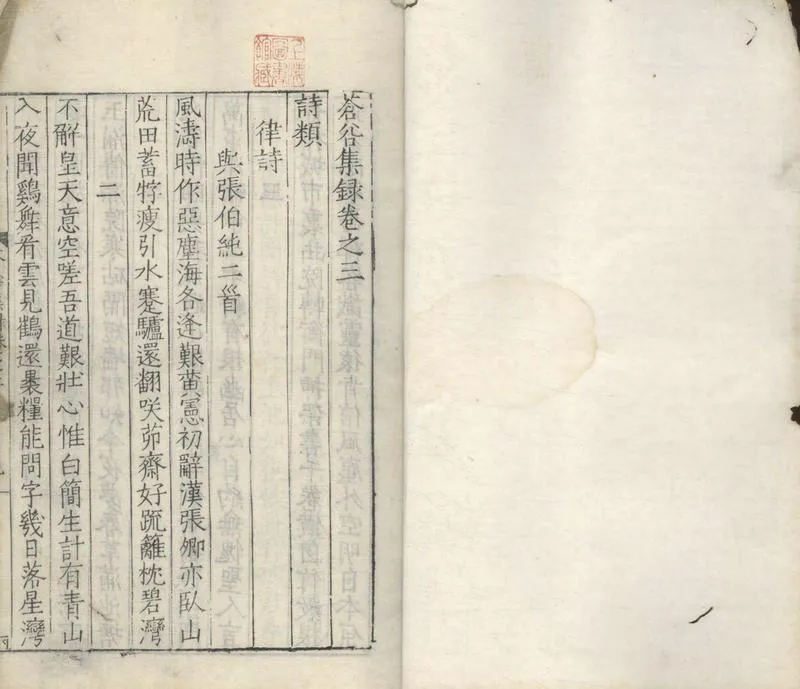 上海圖書館藏
蒼谷集録卷之三
詩類
律詩
與張伯純二首
風濤時作惡塵海各逢艱黄憲初辭漢張卿亦臥山
荒田蓄牸瘦引水蹇驢還翻咲茆齋好疏籬枕碧灣
二
不解皇天意空嗟吾道艱壯心惟白簡生計有青山
入夜聞鷄舞看雲見鶴還裹糧能問字幾日落星灣